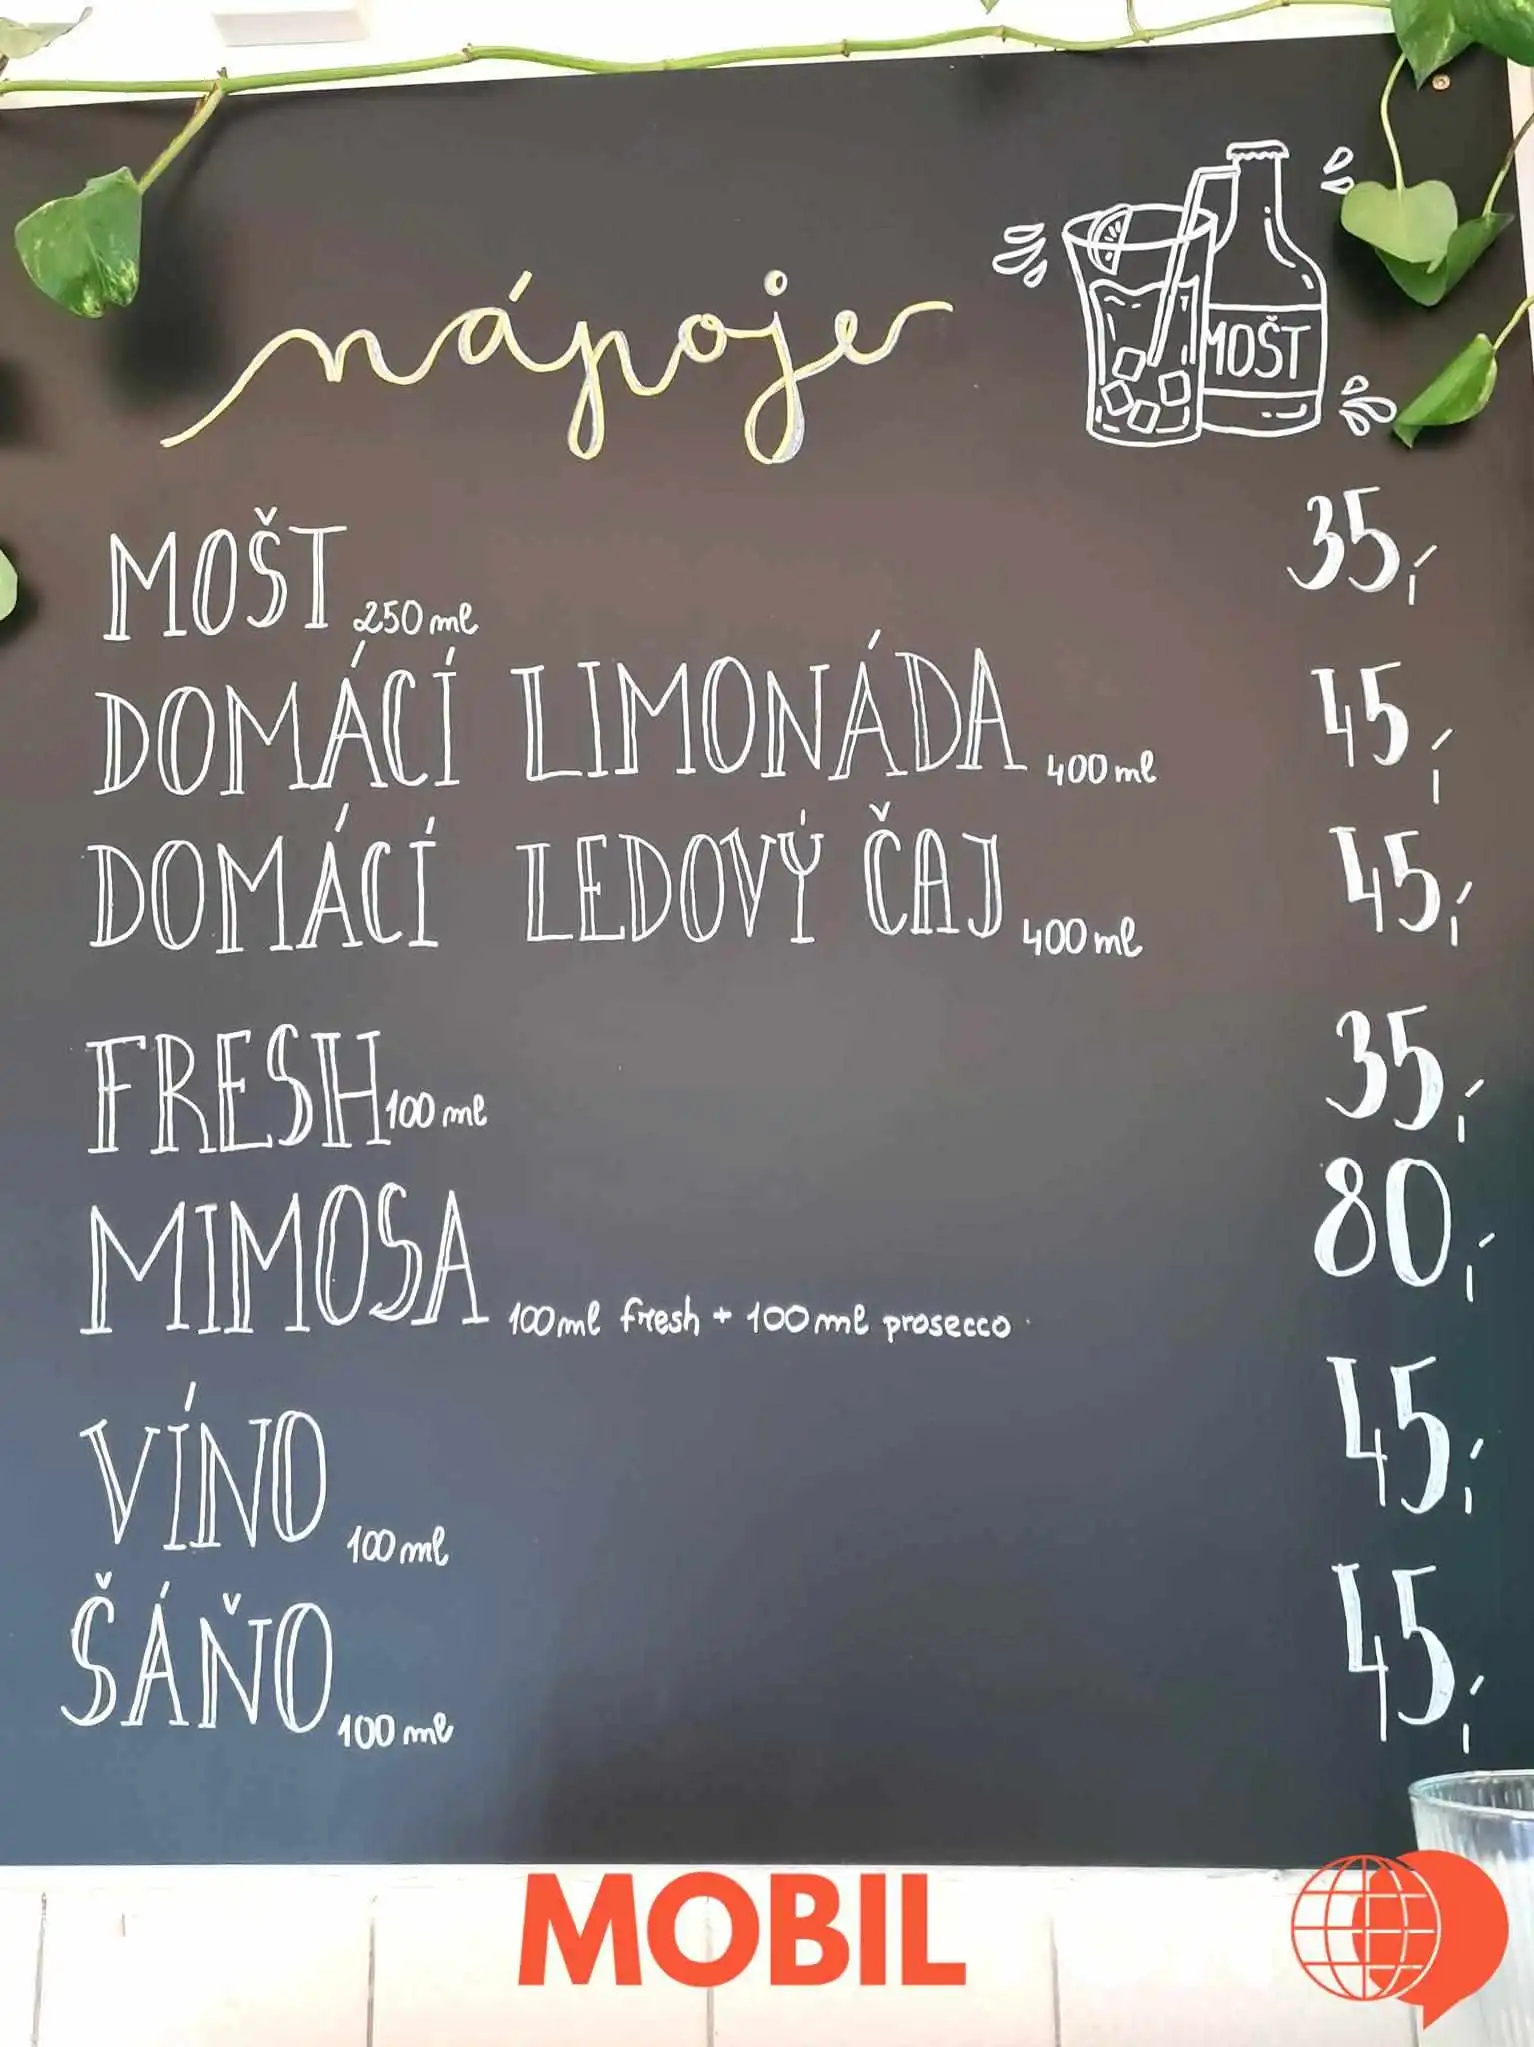 nápoje
MOŠT
MOŠT 250 ml 35,-
DOMÁCÍ LIMONÁDA 400 ml 45,-
DOMÁCÍ LEDOVÝ ČAJ 400 ml 45,-
FRESH 100 ml 35,-
MIMOSA 100ml fresh + 100ml prosecco 80,-
VÍNO 100 ml 45,-
ŠÁŇO 100 ml 45,-
MOBIL